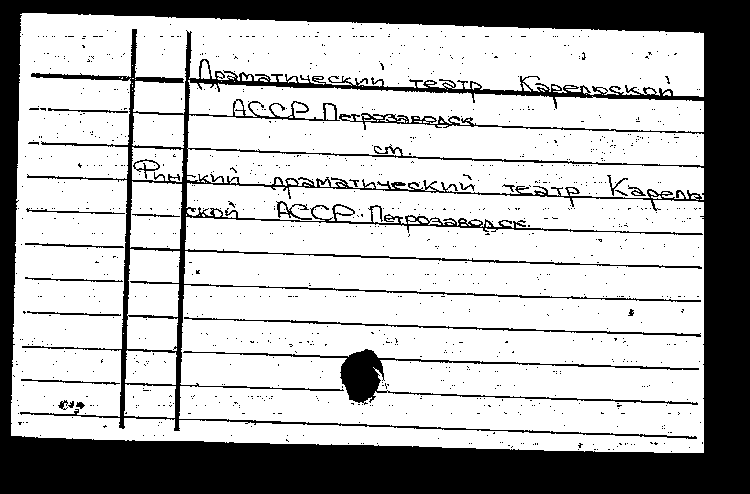 Драматический театр Карельской
АССР. Петрозаводск
см.
Финский драматический театр Карель-
ской АССР. Петрозаводск.